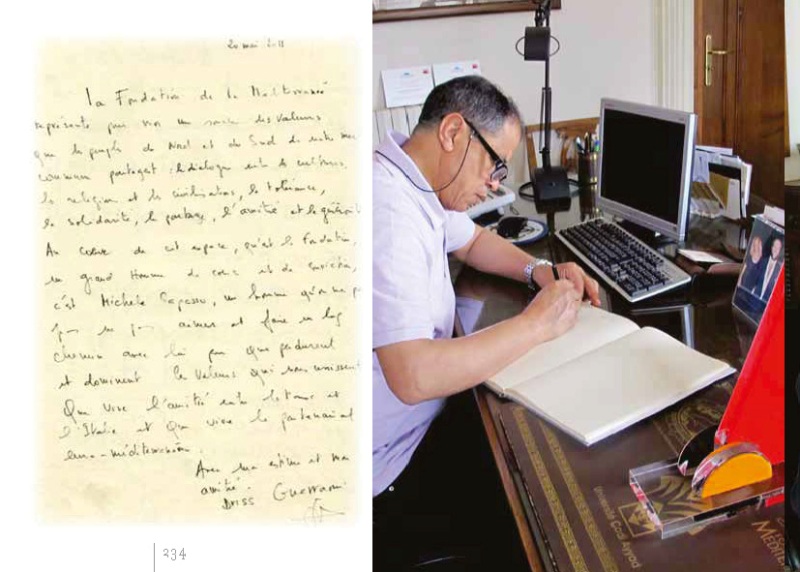 20 mai 2011
La Fondation de la Méditerranée
représente pour moi un socle des valeurs
que les peuples du Nord et du Sud de notre mer
commune partagent : le dialogue entre les cultures,
les religions et les civilisations, la tolérance,
la solidarité, le partage, l'amitié et la générosité
Au cœur de cet espace, qu'est la Fondation,
un grand Homme de cœur et de conviction,
c'est Michele Capasso, un homme qu'on ne peut
pas ne pas aimer et faire un long
chemin avec lui pour que perdurent
et dominent les valeurs qui nous unissent
Que vive l'amitié entre le Maroc et
l'Italie et que vive le partenariat
euro-méditerranéen.
Avec mon estime et mon
amitié
Driss Guerraoui
234
Université Cadi Ayyad